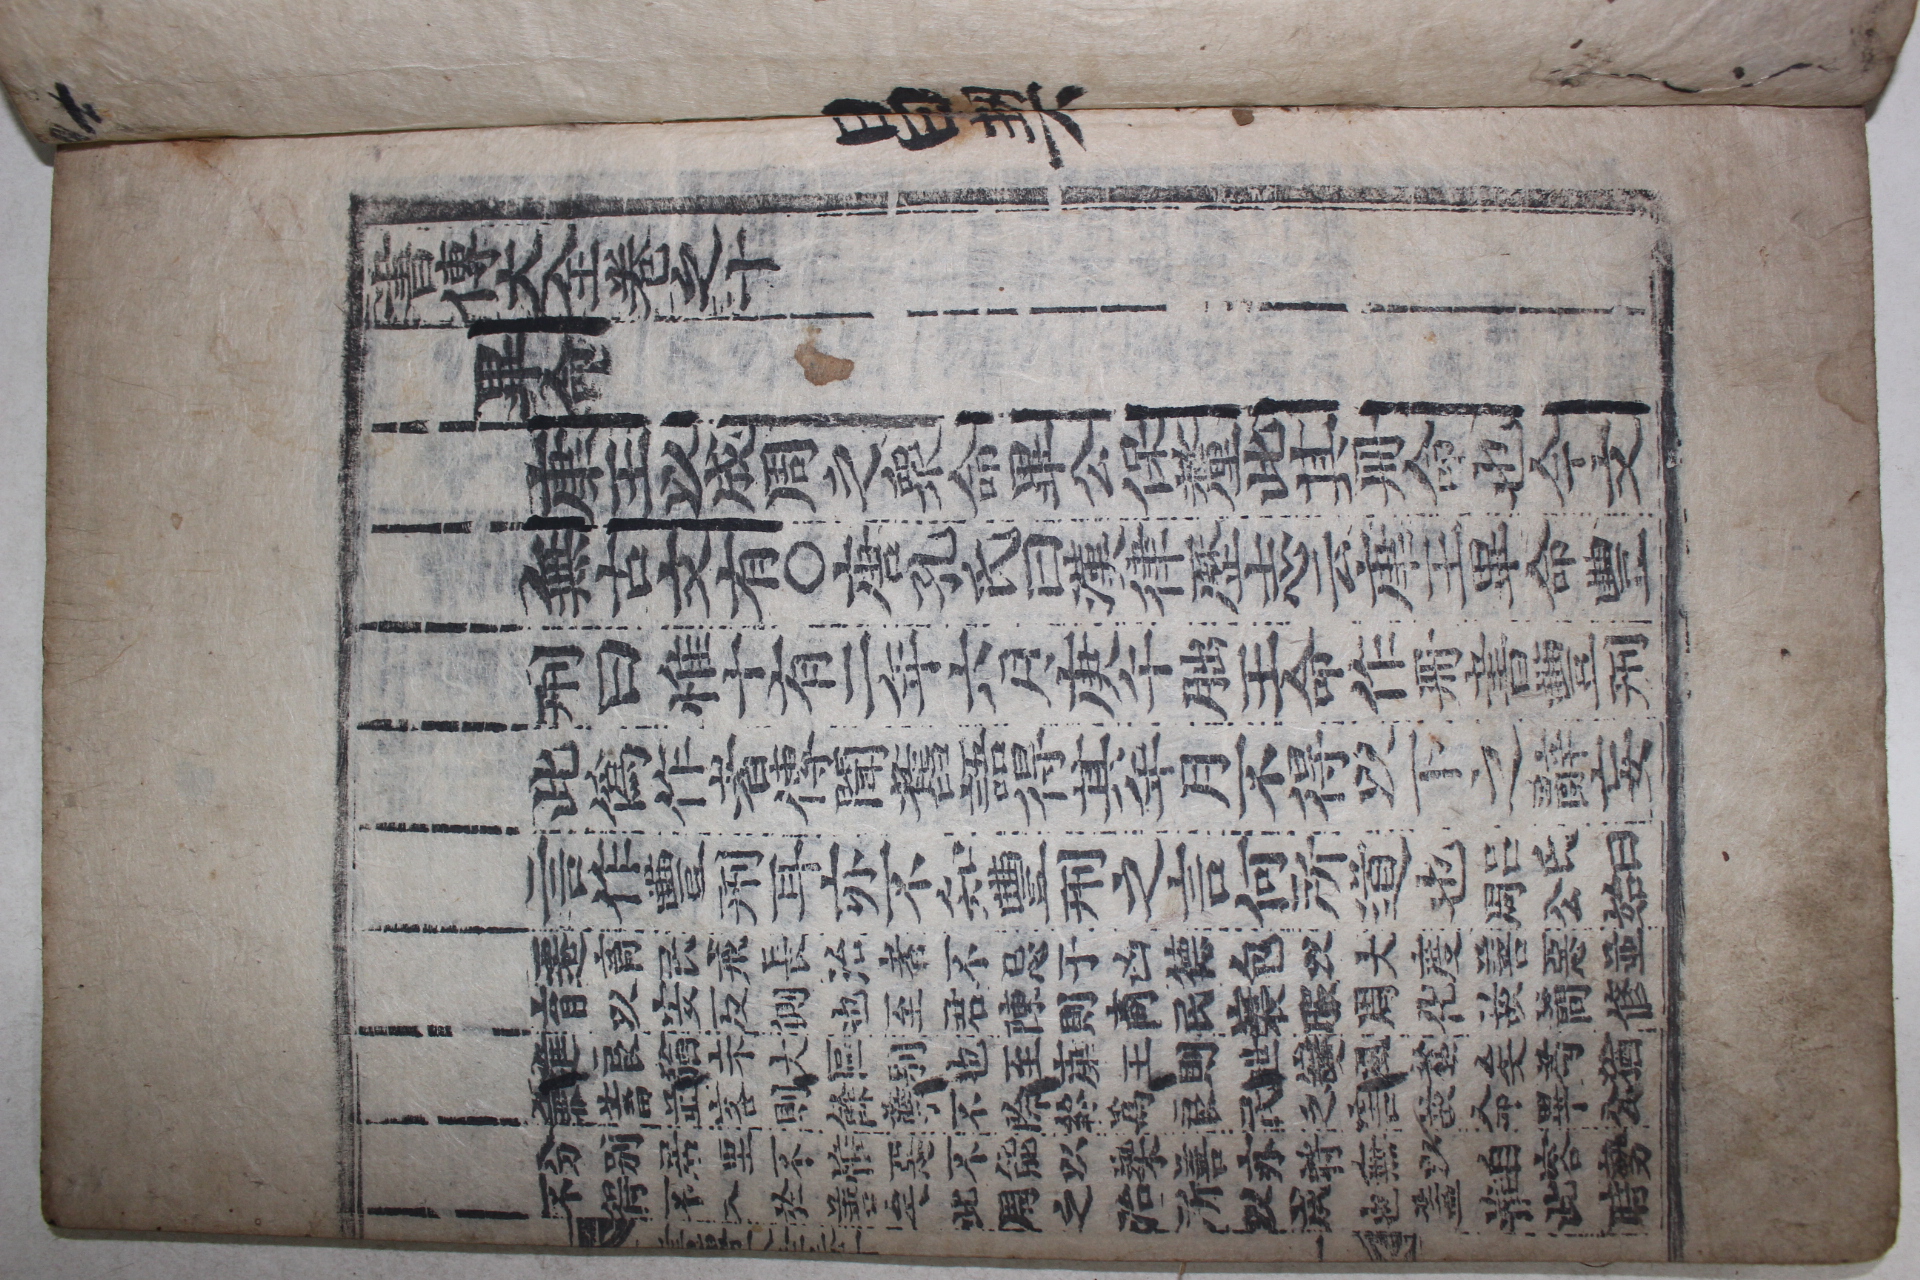 書傳大全卷之十
畢命
康王以成周之衆命畢公保釐此其冊命也今文
無古文有○唐孔氏曰漢律歷志云康王畢命豐
刑曰惟十有二年六月庚午朏王命作冊書豐刑
此僞作者傳聞舊語得其年月不得以下之辭妄
言作豐刑耳亦不知豐刑之言何所道也呂氏曰
周公始
遷商民戒長治者不忌于凶德包以大度善惡並
育以安反側也至君陳則商民寖服周化故簡修
進良猶未大區別也至康王則世變風移矣苟猶
兼蓄並容則餘孽不除終爲良民之害故命畢公
分別居里不惟惡不能以染善亦將無以自容勢
不得不入於善矣此周之治所以成也蓋當此時
昌契